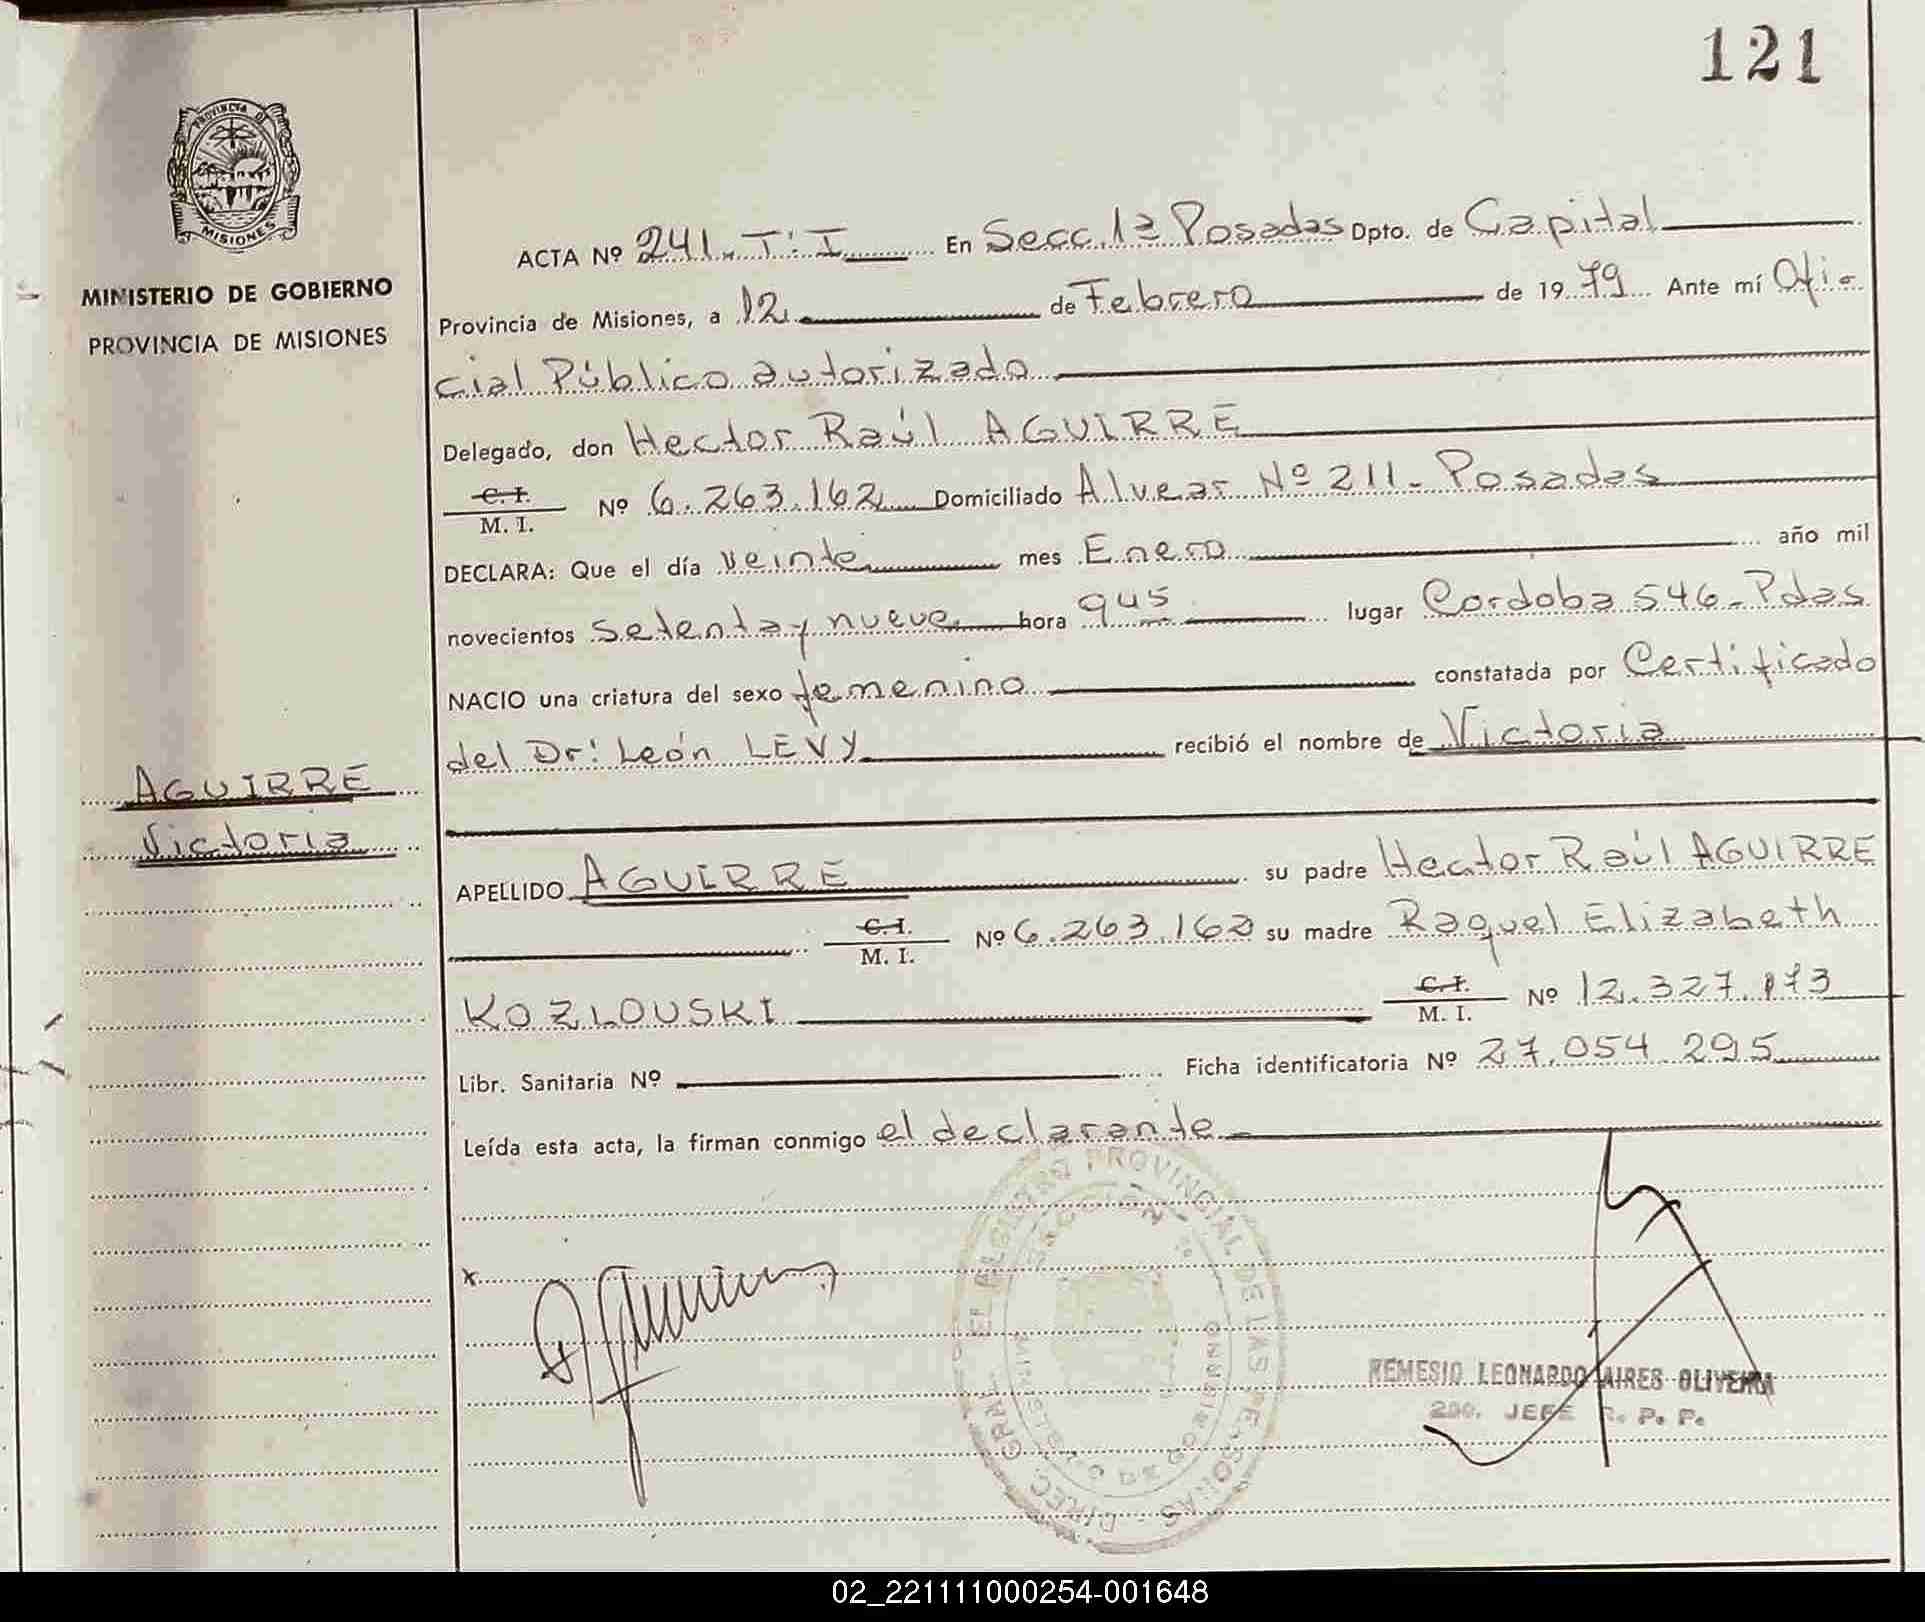 121
PROVINCIA DE
MISIONES
MINISTERIO DE GOBIERNO
PROVINCIA DE MISIONES
AGUIRRE
Victoria
ACTA Nº 241. T: I En Secc. 1ª Posadas Dpto. de Capital
Provincia de Misiones, a 12 de Febrero de 1979 Ante mí Ofi-
cial Público autorizado
Delegado, don Hector Raúl AGUIRRE
C. I.
M. I. Nº 6.263.162 Domiciliado Alvear Nº 211 - Posadas
DECLARA: Que el día veinte mes Enero año mil
novecientos setenta y nueve hora 945 lugar Cordoba 546 - Pdas
NACIO una criatura del sexo femenino constatada por Certificado
del Dr: León LEVY recibió el nombre de Victoria
APELLIDO AGUIRRE su padre Hector Raúl AGUIRRE
C. I.
M. I. Nº 6.263.162 su madre Raquel Elizabeth
KOZLOUSKI C. I.
M. I. Nº 12.327.173
Libr. Sanitaria Nº Ficha identificatoria Nº 27.054.295
Leída esta acta, la firman conmigo el declarante
x
REGISTRO PROVINCIAL DE LAS PERSONAS - DIREC. GRAL.
SECCION
MINIST. DE GOBIERNO
REMESIO LEONARDO AIRES OLIVEIRA
2do. JEFE R. P. P.
02_221111000254-001648